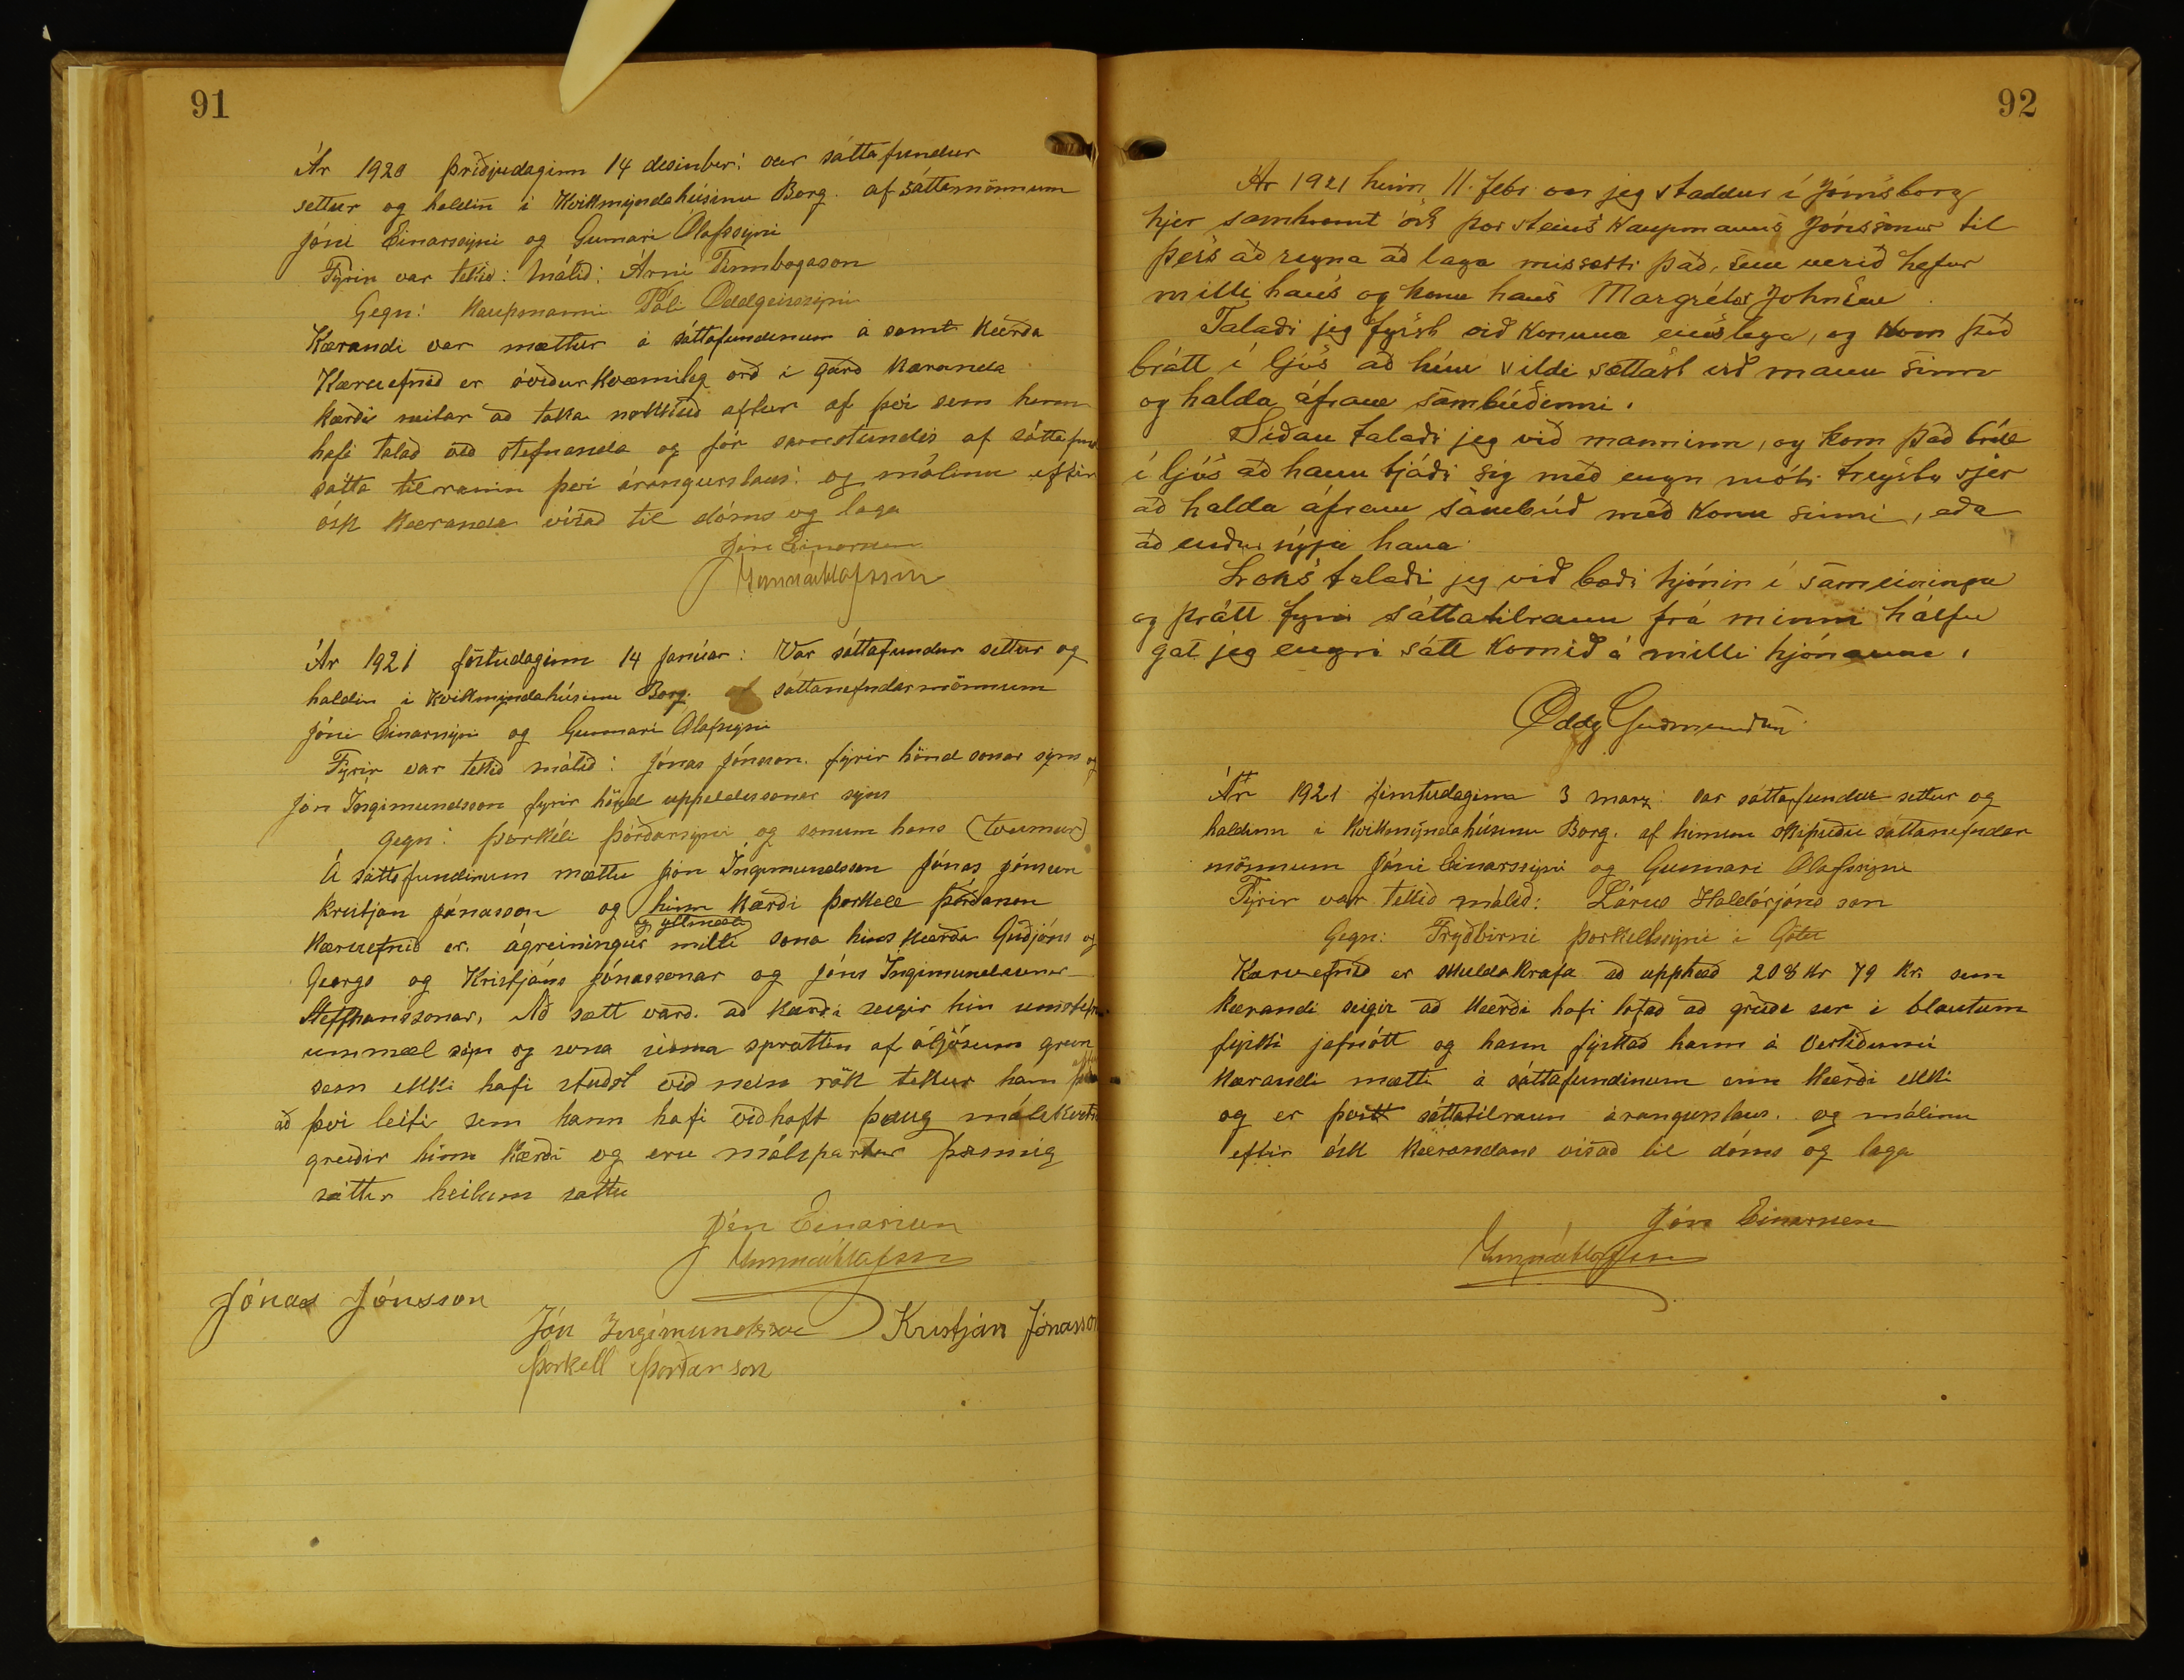 91
Ár 1920 þriðjudaginn 14 desinber: var sáttafundur
settur og haldin i Kvikmyndahúsinu Borg. af sáttamönnum
Jóni Einarssyni og Gunnari Ólafssyni
Fyrir var tekið: Málið: Árni Finnbogason
Gegn: Kaupmanni Páli Oddgeirssyni
Kærandi var mættur á sáttafundinum á samt Kærða
Kæruefnið er óviðurkvæmileg orð i garð Kæranda
Kærði neitar að taka nokkuð aftur af þvi sem hann
hafi talað við stefnanda og fór samstundis af sáttafund
sátta tilraunin þvi árangurslaus: og málinu eftir
ósk Kæranda visað til dóms og laga
Jón Einarsson
Gunnar Ólafsson
Ár 1921 föstudaginn 14 Janúar: Var sáttafundur settur og
haldin i Kvikmyndahúsinu Borg. af sáttanefndarmönnum
Jóni Einarssyni og Gunnari Ólafssyni
Fyrir var tekið málið: Jónas Jónsson. fyrir hönd sonar syns og
Jón Ingimundsson fyrir hönd uppeldissonar syns
gegn: Þorkéli Þórðarsyni og sonum hans (tveimur)
Á sáttafundinum mættu Jón Ingimundsson Jónas Jónsson
Kristjan Jónasson og hinn Kærði Þorkell Þórðarson
og yllmæli
Kæruefnið er. ágreiningur milli sona hins Kærða Guðjóns og
Georgs og Kristjáns Jónassonar og Jóns Ingimundssonar
Steffhanssonar, Að sætt varð. að Kærði segir hin umstefn
ummæl sýn og sona sinna sprottin af óljósum grun
sem ekki hafi stuðst við nein rök tekur hann aftur
að þvi leiti sem hann hafi viðhaft þaug málskostn
greiðir hinn Kærði og eru málspartar þannig
sáttir heilum sáttu
Jón Einarsson
Gunnar Ólafsson
Jónas Jónsson
Jón Ingimundsson Kristján Jónasson
Þorkell Þorðarson
92
Ár 1921 hinn 11. febr. var jeg staddur í Jómsborg
hjer samkvæmt ósk Þorsteins Kaupmanns Jónssonar til
þess að reyna að laga missætti það, sem verið hefur
milli hans og konu hans Margrétar Johnsen.
Talaði jeg fyrst við Konuna einslega, og Kom það
brátt í ljós að hún vildi sættast við mann sinn
og halda áfram sambúðinni.
Síðan talaði jeg við manninn, og kom það brátt
í ljós að hann tjáði sig með engu móti treysta sjer
að halda áfram sambúð með Konu sinni, eða
að endurnýja hana.
Loks talaði jeg við bæði hjónin í sameiningu
og þrátt fyrir sáttatilraun frá minni hálfu
gat jeg engri sátt Komið á milli hjónanna.
Oddg Guðmundsen
Ár 1921 fimtudaginn 3 marz: var sáttafundur settur og
haldinn i Kvikmyndahúsinu Borg. af hinum skipuðu sáttanefndar
mönnum Jóni Einarssyni og Gunnari Ólafssyni
Fyrir var tekið málið: Lárus Haldórjóns son
Gegn: Fryðbirni Þorkelssyni i Götu
Kæruefnið er skuldakrafa að upphæð 208 Kr 79 Kr. sem
Kærandi seigir að Kærði hafi lofað að greiða ser i blautum
fyski jafnótt og hann fyskað hann á Vertiðunni
Kærandi mætti á sáttafundinum enn Kærði ekki
og er þvi sáttatilraun árangurslaus. og málinu
eftir ósk Kærandans visað til dóms og laga
Jón Einarsson
Gunnar Ólafsson